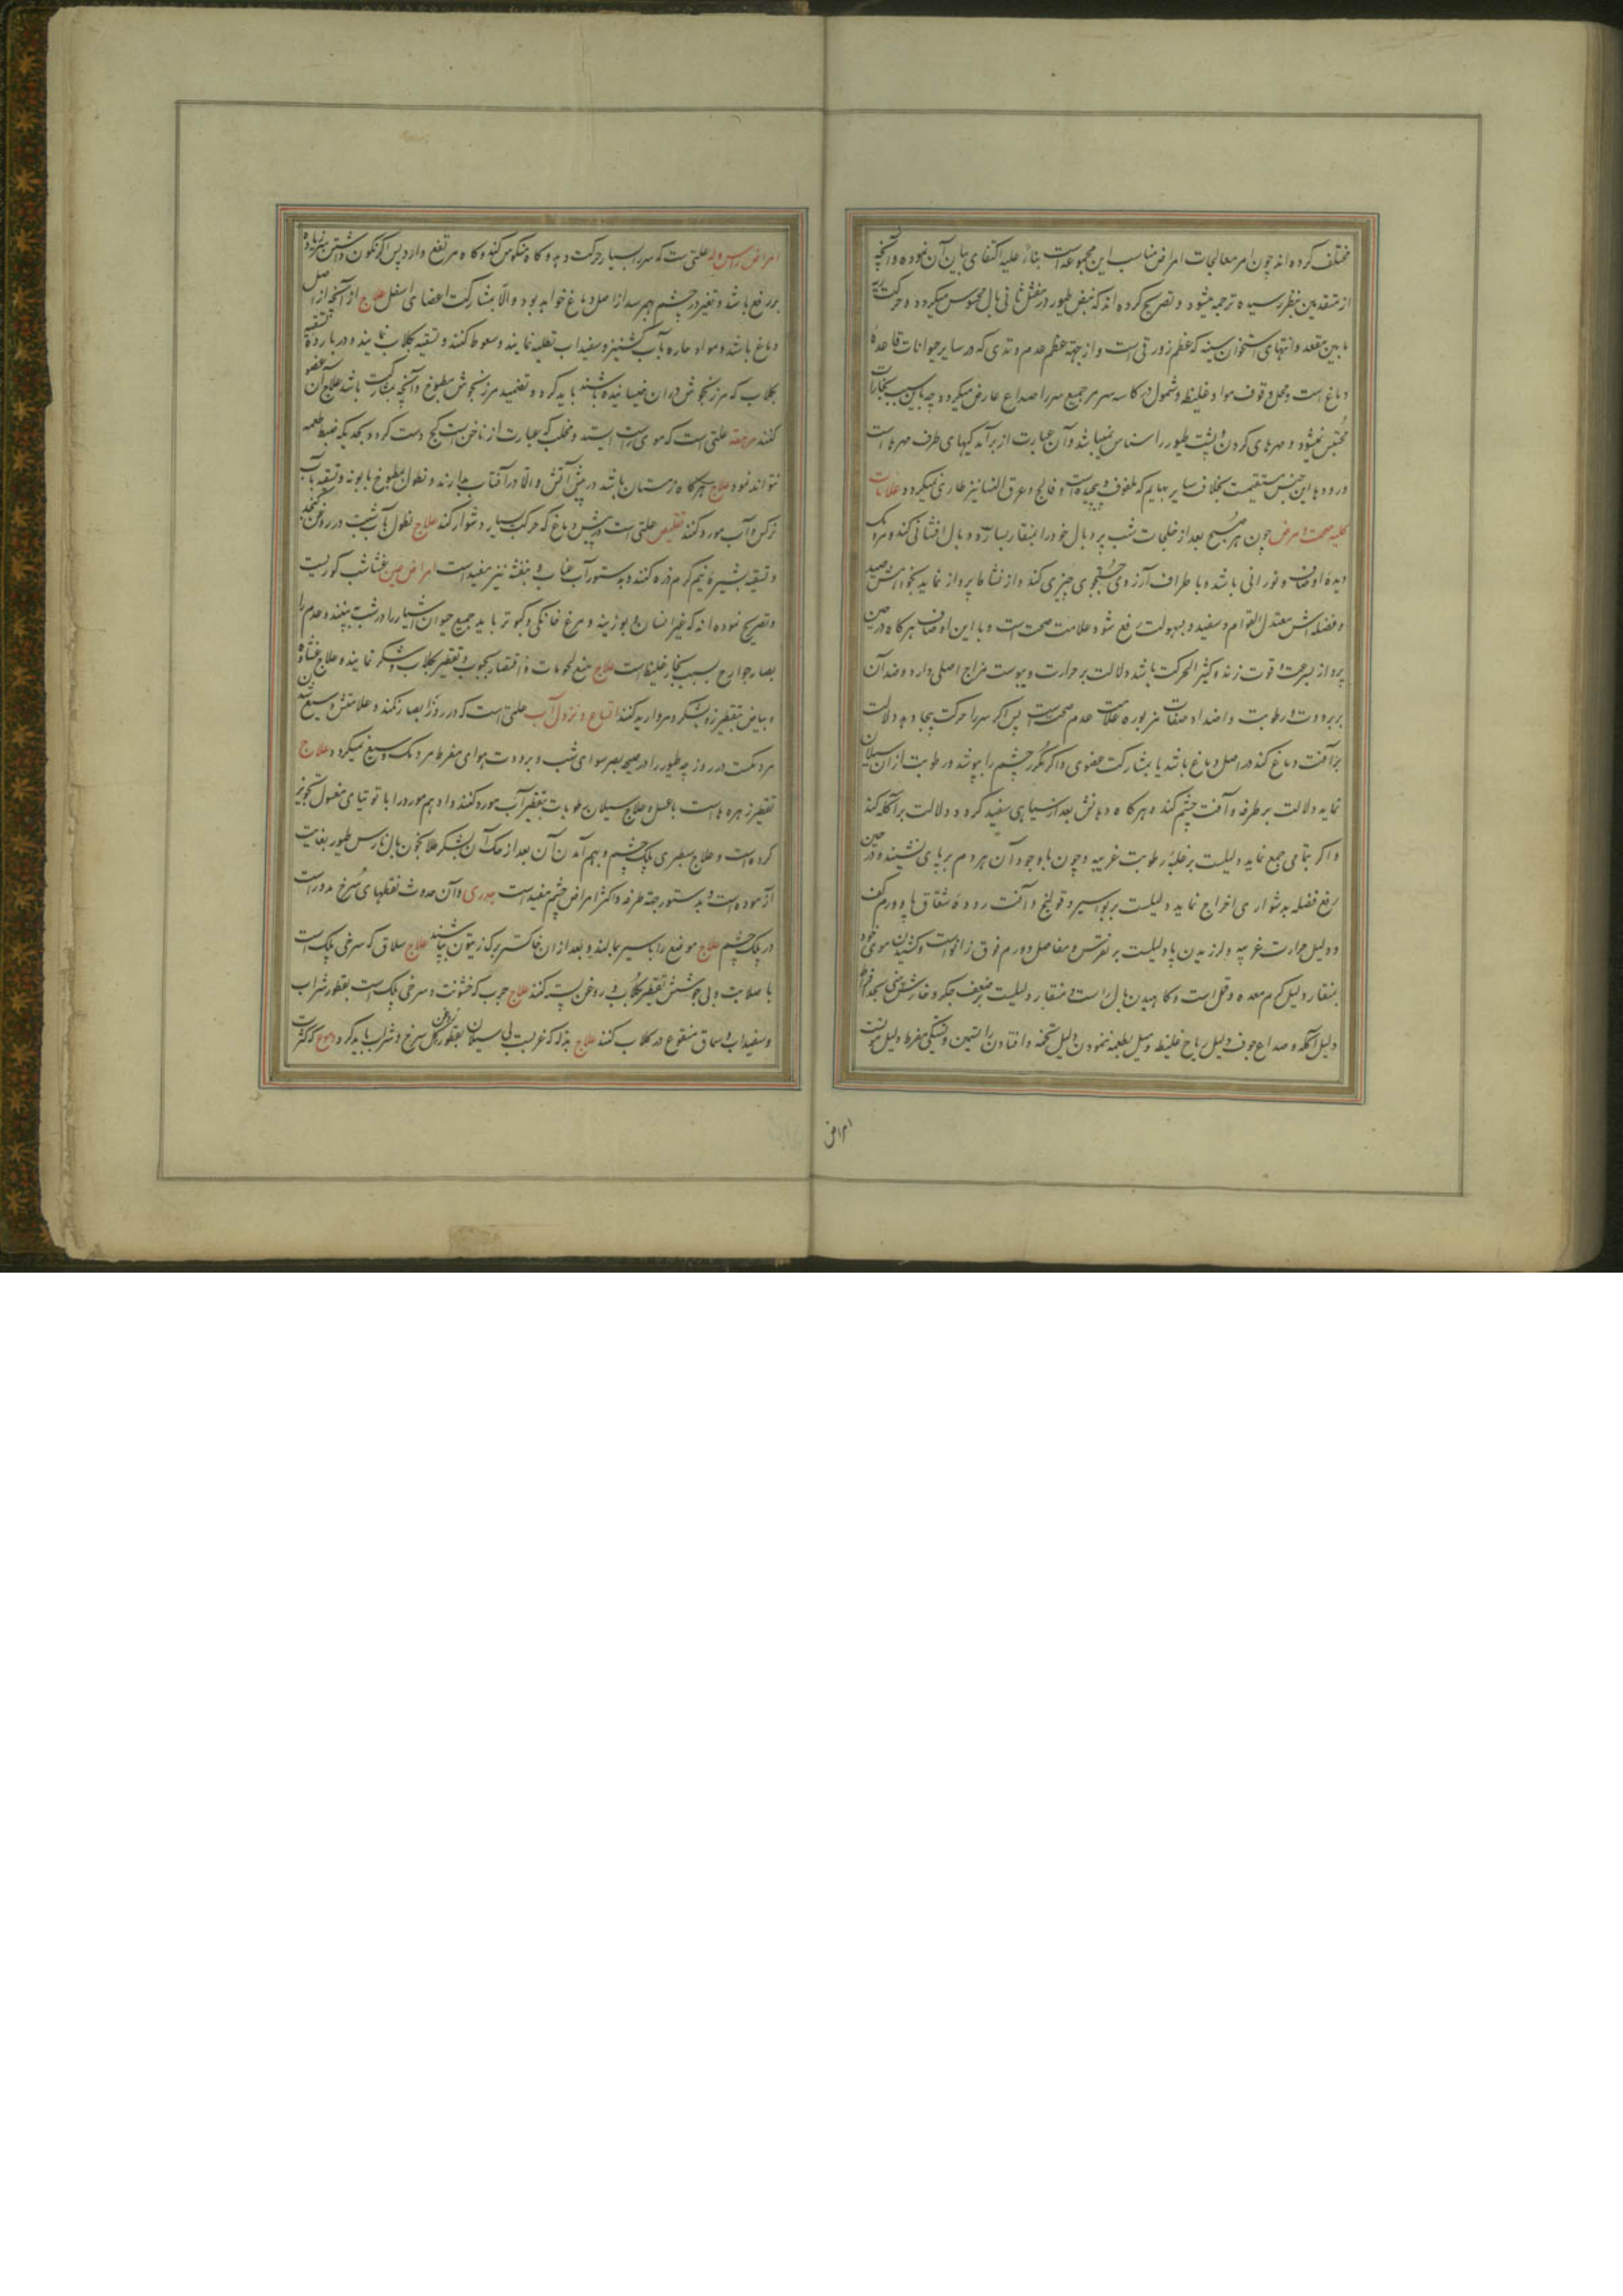 مختلف کرده‌اند چون امر معالجات امراض مناسب این مجموعه است بناء علیه اکتفا ببیان آن نموده و آنچه
از متقدمین بنظر رسیده ترجمه میشود و تصریح کرده‌اند که نبض طیور در مفصل ثانی بال محسوس میگردد و حرکت ریه
ما بین مقعد و انتهای استخوان سینه که عظم زورقی است و از جهة عظم عدم وتدی که در سایر حیوانات قاعدهٔ
دماغ است و محل وقوف مواد غلیظه و شمول در کاسه سر مر جمیع سر را صداع عارض میگردد چه باین سبب بخارات
محتبس نمیشود و مهرهای کردن و پشت طیور را سناسن نمیباشد و آن عبارت از برآمدگیهای طرف مهرها است
و رودهٔ این جنس مستقیمست بخلاف سایر بهایم که ملفوف و پیچیده است و فالج و عرق النسا نیز طاری نمیگردد علامات
کلیه صحت و مرض چون هر صبح بعد از ظلمات شب پر و بال خود را بمنقار بسازد و بال افشانی کند و مردمک
دیدهٔ او صاف و نورانی باشد و با طراف آرزوی جستجوی چیزی کند و از نشاط پرواز نماید بخواهش صید
و فضله‌اش معتدل القوام و سفید و بسهولت رفع شود علامت صحت است و با این اوصاف هرکاه در حین
پرواز بسرعت و قوت زند و کثیر الحرکت باشد دلالت بر حرارت و یبوست مزاج اصلی دارد و ضد آن
بر برودت و رطوبت و اضداد صفات مزبوره علامت عدم صحت است پس اکر سر را حرکت بیجا دهد دلالت
بر آفت دماغ کند در اصل دماغ باشد یا بمشارکت عضوی و اکر مکرر چشم را بپوشد و رطوبت از آن سیلان
نماید دلالت بر طرفه و آفت چشم کند و هرکاه دهانش بعد از سیاهی سفید کردد دلالت بر آکله کند
و اکر بتمامی جمع نماید دلیلست بر غلبهٔ رطوبت غریبه و چون با وجود آن هر دم بر پای نشیند و در حین
رفع فضله بدشواری اخراج نماید دلیلست بر بواسیر و قولنج و آفت روده و شقاق پا و ورم کف
و دلیل حرارت غریبه و لرزیدن پا دلیلست بر نقرس و مفاصل و ورم فوق زانو است و کندن موی خود
بمنقار دلیل کرم معده و قمل است و کاهیدن بال راست و منقار دلیلست بر ضعف جکر و خارش بینی بحد افراط
دلیل آکله و صداع جوف دلیل ریاح غلیظ و میل بطعمه ننمودن دلیل تخمه و افتادن رانین و تشنکی مفرط دلیل موتست
امراض
امراض راس وله علتی است که سر را بسیار حرکت دهد و کاه منکوس کند و کاه مرتفع دارد پس اکر نکون داشتن سر زیاده
بر رفع باشد و تغیر در چشم بهم رسد از اصل دماغ خواهد بود و الّا بمشارکت اعضای اسفل علاج از آنچه از اصل
دماغ باشد و مواد حاره بآب کشنیز و سفیداب تطلیه نمایند و سعوط کنند و تنقیه بکلاب نمایند و در بارده تنقیه
بکلاب که مرزنجوش در آن خیسانیده باشند باید کرد و تضمید مرزنجوش مطبوخ و آنچه بمشارکت باشد علاج آن عضو
کنند علتی است که موی راست ایستد و مخلب که عبارت از ناخن است کج دست کردد بحدیکه ضبط طعمه
نتواند نمود علاج هرکاه زمستان باشد در پیش آتش و الّا در آفتاب بدارند و نطول مطبوخ بابونه و تنقیه بآب
نرکس و آب مورد کنند تقلیص علتی است در پیش دماغ که حرکت بسیار دشوار کند علاج نطول بآب شبت در روغن کنجد
و تنقیه بشیرهٔ نیم کرم ذره کنند و بدستور آب عناب و بنفشه نیز مفید است امراض عین غشا شب کوریست
و تصریح نموده‌اند که غیر انسان و بوزینه و مرغ خانکی و کبوتر باید جمیع حیوان اشیا را در شب بینند و عدم
بصار جوارح بسبب بخار غلیظ است علاج منع لحومات و اقتصار بحبوب و تقطیر کلاب و شکر نمایند و علاج غشاوه
و بیاض بتقطیر زبد و شکر و مروارید کنند اتساع و نزول آب علتی است که در روز ابصار نکند و علامتش وسیع شدن
مردمکست در روز چه طیور را در صحه بصر سوای شب و برودت هوای مفرط مردمک وسیع نمیکردد علاج
تقطیر زهره‌هاست با عسل و علاج سیلان رطوبات بتقطیر آب مورد کنند و ادهم مورد را با توتیای مغسول تجویز
کرده است و علاج سطبری پلک چشم و بهم آمدن آن بعد از حک آن بشکر طلا بخون بال نارس طیور بغایت
آزموده است و بدستور جهة طرفه و اکثر امراض چشم مفید است جدری و آن حدوث نقطهای سرخ مدور است
در پلک چشم علاج موضع را با سیر بمالند و بعد از آن خاکستر برک زیتون بپاشند علاج سلاق که سرخی پلک است
با صلابت و بی جوشش تقطیر کلاب و روغن پسته کنند علاج جرب که خشونت و سرخی پلک است بقطور شراب
و سفیداب و سماق منقوع در کلاب کنند علاج بدکه که غربست بی سیلان بقطور روغن کل سرخ و شراب باید کرد دموع که کثرت